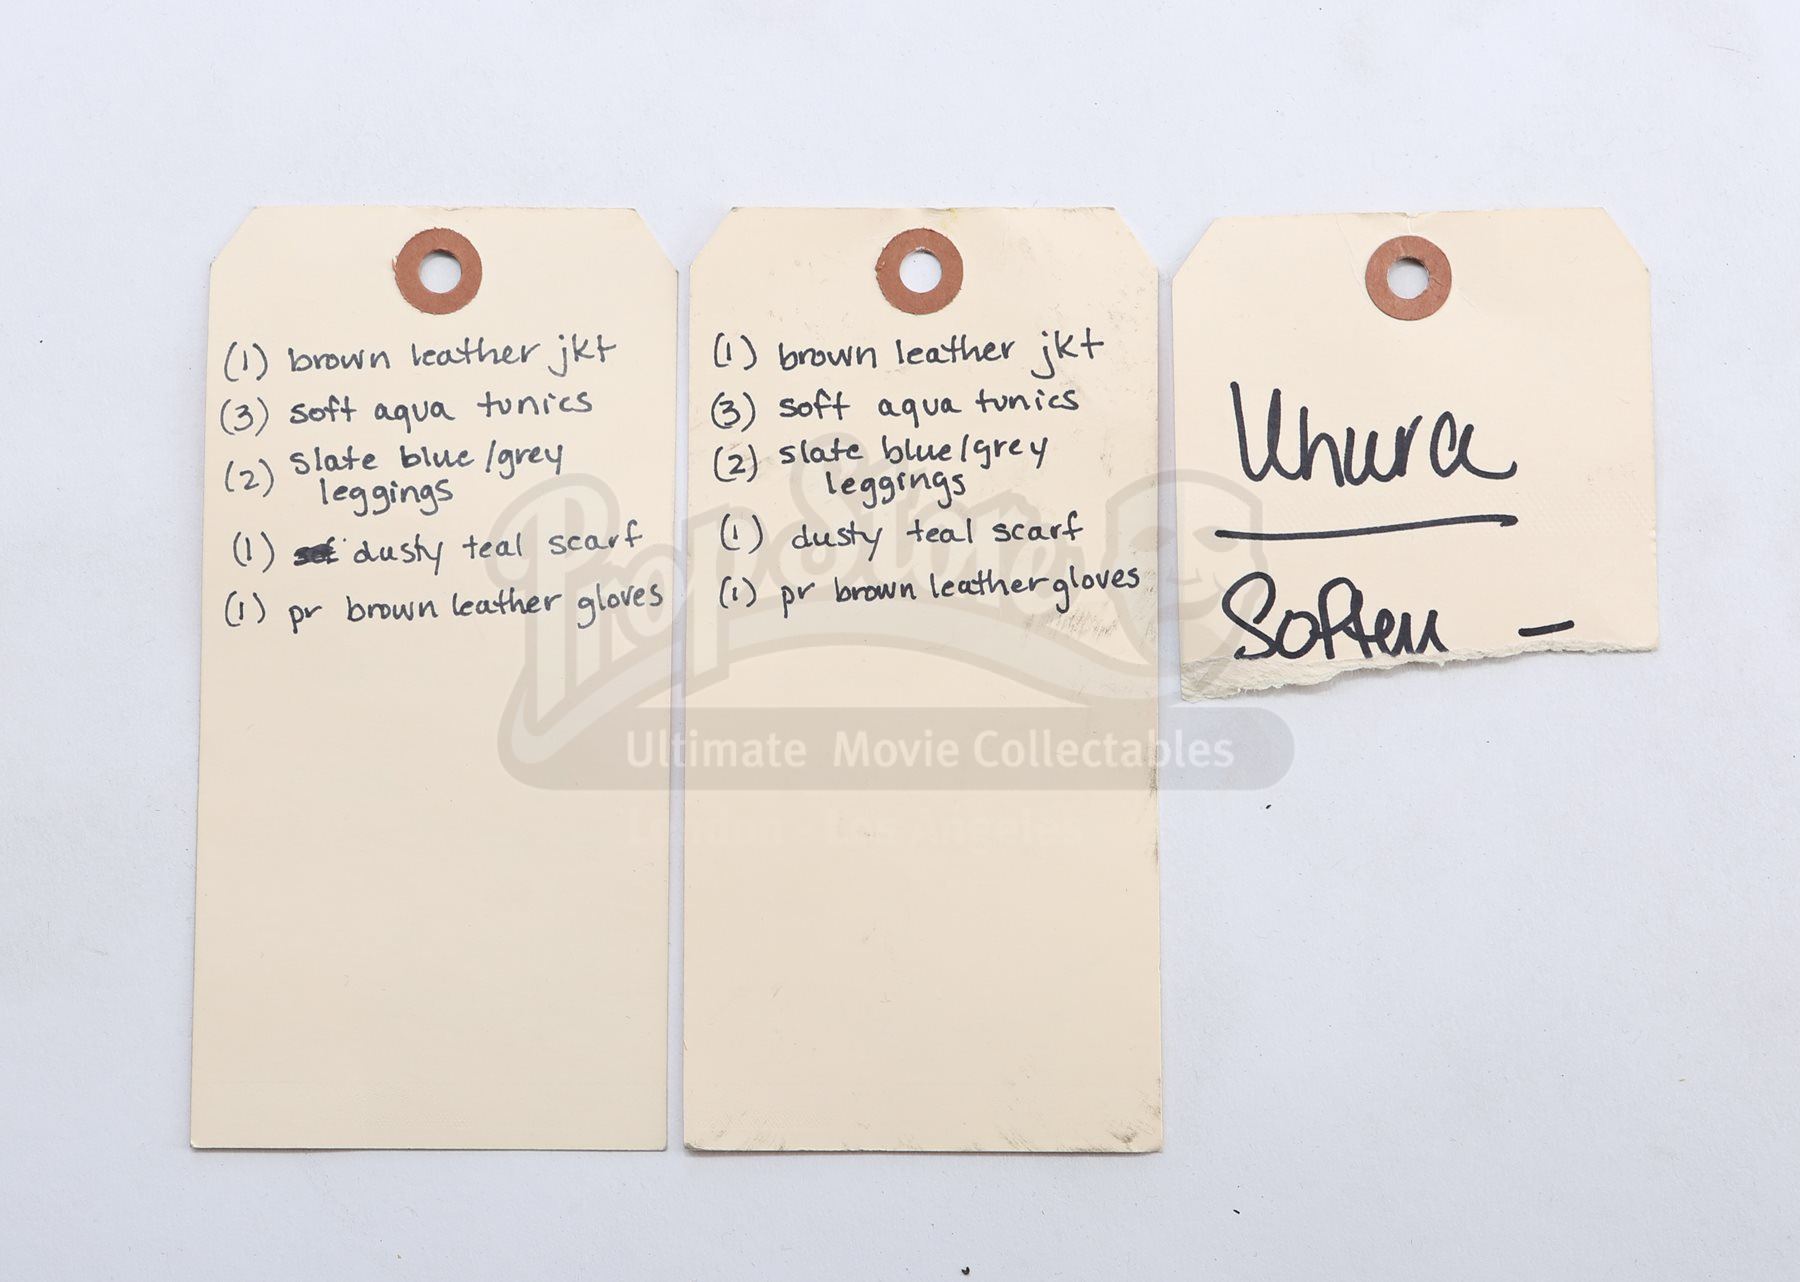 (1) brown leather jkt
(3) soft aqua tunics
(2) slate blue/grey
leggings
(1) dusty teal scarf
(1) pr brown leather gloves
(1) brown leather jkt
(3) soft aqua tunics
(2) slate blue/grey
leggings
(1) dusty teal scarf
(1) pr brown leather gloves
Uhura
Soften –
Prop Store
Ultimate Movie Collectables
London - Los Angeles